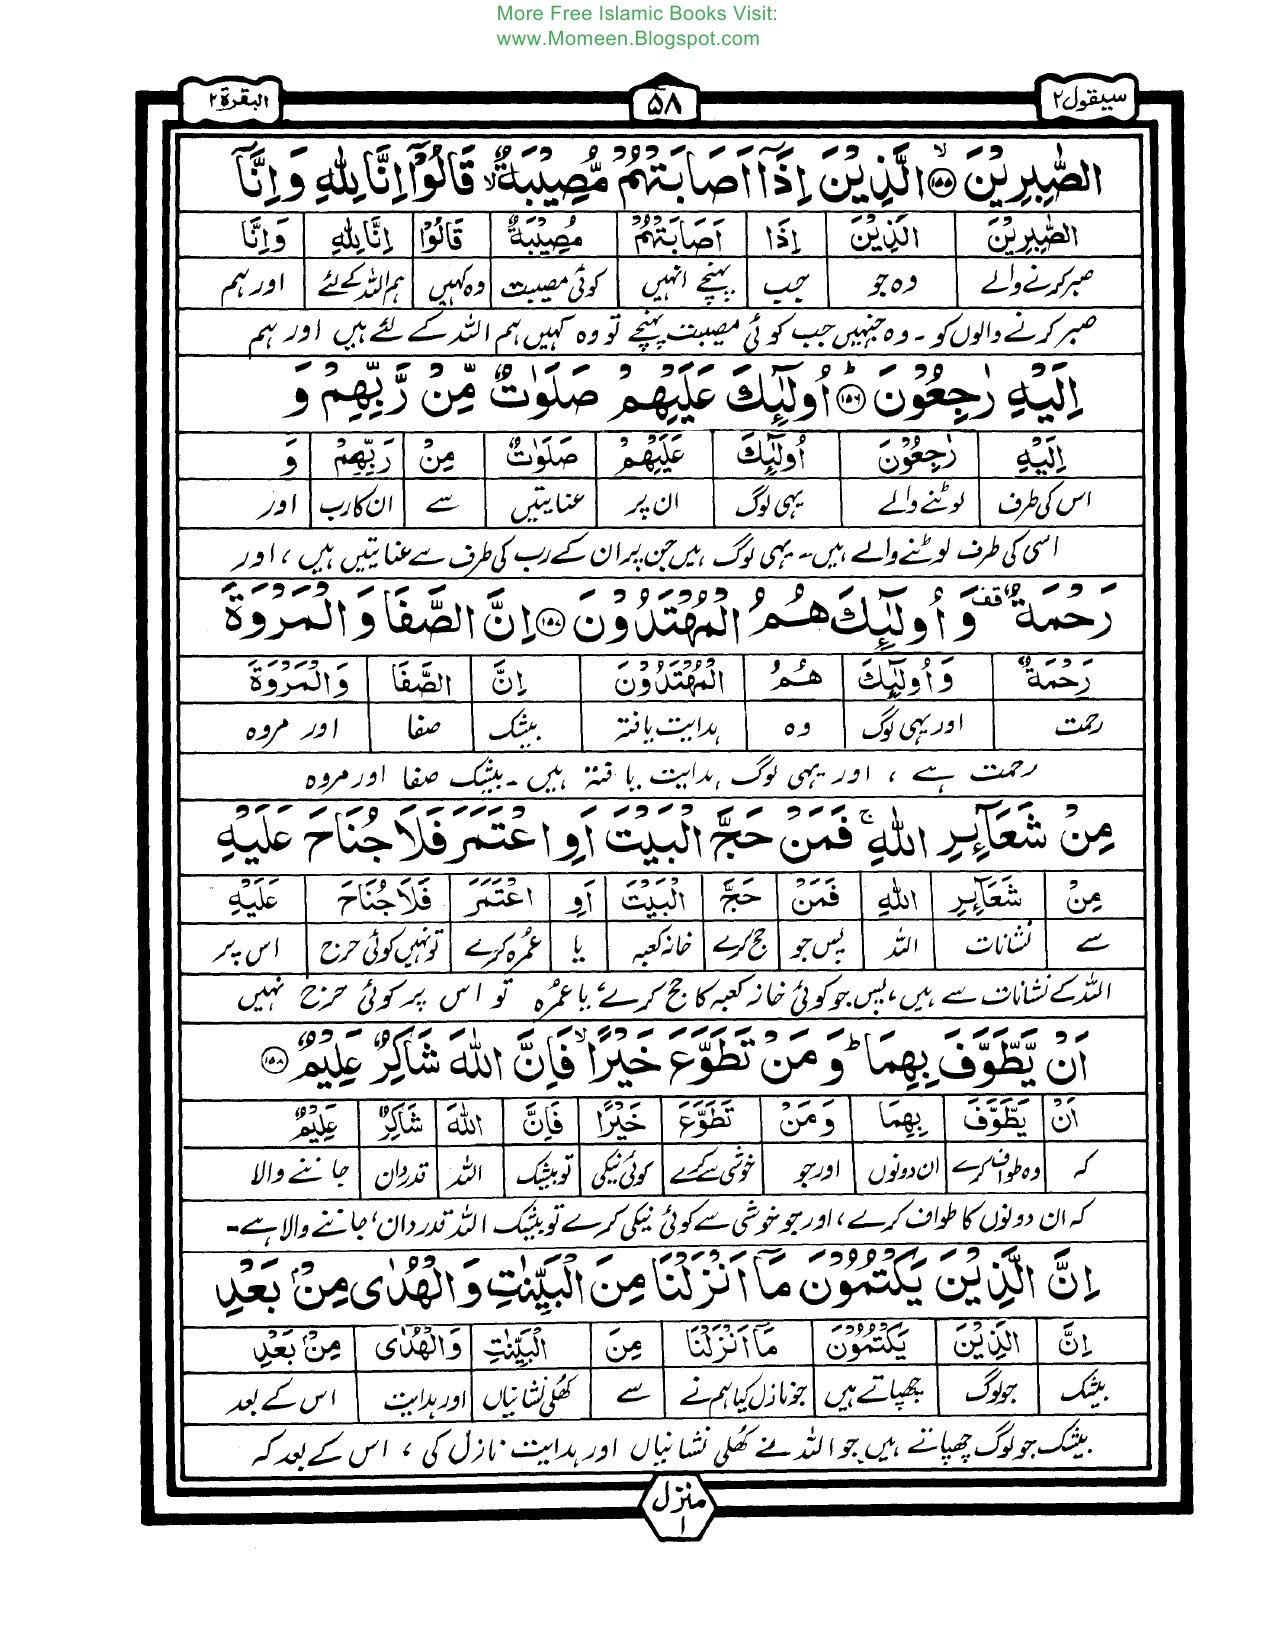 More Free Islamic Books Visit:
www.Momeen.Blogspot.com
سیقول ۲ ۵۸ البقرة ۲
الصّٰبِرِیْنَ ۙ﴿۱۵۵﴾ الَّذِیْنَ اِذَاۤ اَصَابَتْهُمْ مُّصِیْبَةٌ ۙ قَالُوْۤا اِنَّا لِلّٰهِ وَ اِنَّاۤ
الصّٰبِرِیْنَ الَّذِیْنَ اِذَا اَصَابَتْهُمْ مُصِیْبَةٌ قَالُوْۤا اِنَّا لِلّٰهِ وَاِنَّا
صبر کرنے والے وہ جو جب پہنچے انہیں کوئی مصیبت وہ کہیں ہم اللہ کے لئے اور ہم
صبر کرنے والوں کو ۔ وہ جنہیں جب کوئی مصیبت پہنچے تو وہ کہیں ہم اللہ کے لئے ہیں اور ہم
اِلَیْهِ رٰجِعُوْنَ ؕ﴿۱۵۶﴾ اُولٰٓئِكَ عَلَیْهِمْ صَلَوٰتٌ مِّنْ رَّبِّهِمْ وَ
اِلَیْهِ رٰجِعُوْنَ اُولٰٓئِكَ عَلَیْهِمْ صَلَوٰتٌ مِنْ رَبِّهِمْ وَ
اس کی طرف لوٹنے والے یہی لوگ ان پر عنایتیں سے ان کا رب اور
اسی کی طرف لوٹنے والے ہیں۔ یہی لوگ ہیں جن پر ان کے رب کی طرف سے عنایتیں ہیں ، اور
رَحْمَةٌ ۟قف وَ اُولٰٓئِكَ هُمُ الْمُهْتَدُوْنَ ﴿۱۵۷﴾ اِنَّ الصَّفَا وَ الْمَرْوَةَ
رَحْمَةٌ وَاُولٰٓئِكَ هُمُ الْمُهْتَدُوْنَ اِنَّ الصَّفَا وَالْمَرْوَةَ
رحمت اور یہی لوگ وہ ہدایت یافتہ بیشک صفا اور مروہ
رحمت ہے ، اور یہی لوگ ہدایت یافتہ ہیں ۔ بیشک صفا اور مروہ
مِنْ شَعَآئِرِ اللّٰهِ ۚ فَمَنْ حَجَّ الْبَیْتَ اَوِ اعْتَمَرَ فَلَا جُنَاحَ عَلَیْهِ
مِنْ شَعَآئِرِ اللّٰهِ فَمَنْ حَجَّ الْبَیْتَ اَوِ اعْتَمَرَ فَلَا جُنَاحَ عَلَیْهِ
سے نشانات اللہ پس جو حج کرے خانہ کعبہ یا عمرہ کرے تو نہیں کوئی حرج اس پر
اللہ کے نشانات سے ہیں ، پس جو کوئی خانہ کعبہ کا حج کرے یا عمرہ تو اس پر کوئی حرج نہیں
اَنْ یَّطَّوَّفَ بِهِمَا ؕ وَ مَنْ تَطَوَّعَ خَیْرًا ۙ فَاِنَّ اللّٰهَ شَاكِرٌ عَلِیْمٌ ﴿۱۵۸﴾
اَنْ یَطَّوَّفَ بِهِمَا وَمَنْ تَطَوَّعَ خَیْرًا فَاِنَّ اللّٰهَ شَاكِرٌ عَلِیْمٌ
کہ وہ طواف کرے ان دونوں اور جو خوشی سے کرے کوئی نیکی تو بیشک اللہ قدردان جاننے والا
کہ ان دونوں کا طواف کرے ، اور جو خوشی سے کوئی نیکی کرے تو بیشک اللہ قدردان ، جاننے والا ہے ۔
اِنَّ الَّذِیْنَ یَكْتُمُوْنَ مَاۤ اَنْزَلْنَا مِنَ الْبَیِّنٰتِ وَ الْهُدٰی مِنْۢ بَعْدِ
اِنَّ الَّذِیْنَ یَكْتُمُوْنَ مَاۤ اَنْزَلْنَا مِنَ الْبَیِّنٰتِ وَالْهُدٰی مِنْۢ بَعْدِ
بیشک جو لوگ چھپاتے ہیں جو نازل کیا ہم نے سے کھلی نشانیاں اور ہدایت اس کے بعد
بیشک جو لوگ چھپاتے ہیں جو اللہ نے کھلی نشانیاں اور ہدایت نازل کی ، اس کے بعد کہ
منزل ۱